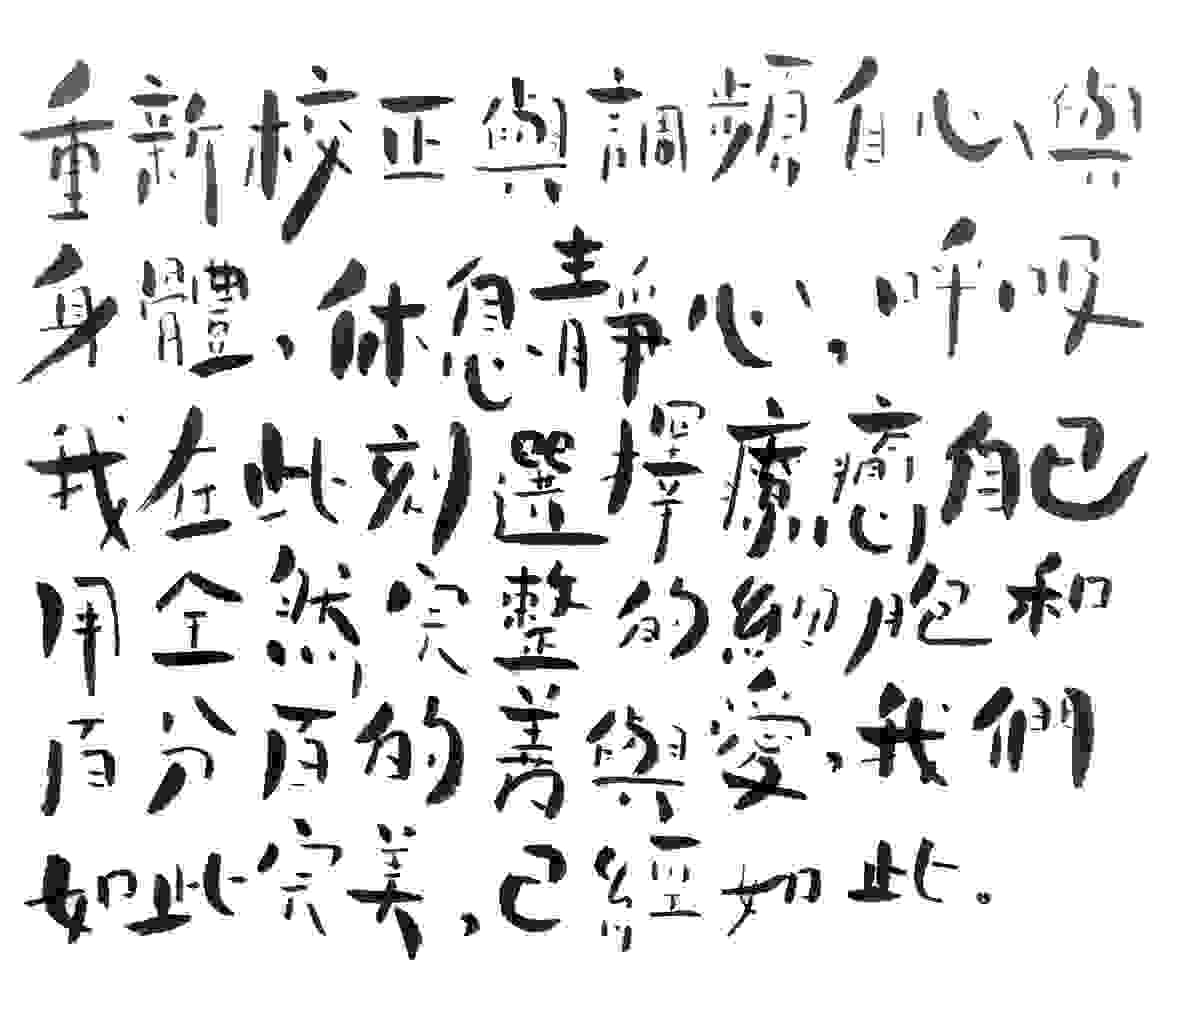 重新校正與調頻自心與
身體、休息靜心,呼吸
我在此刻選擇療癒自己
用全然完整的細胞和
百分百的善與愛,我們
如此完美,已經如此。